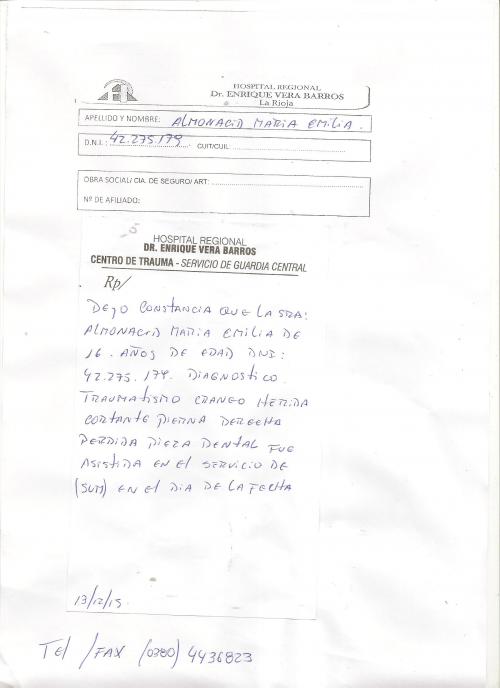 HOSPITAL REGIONAL
Dr. ENRIQUE VERA BARROS
La Rioja
APELLIDO Y NOMBRE: ALMONACID MARIA EMILIA.
D.N.I.: 42.275.179. CUIT/CUIL:
OBRA SOCIAL/ CIA. DE SEGURO/ ART:
Nº DE AFILIADO:
HOSPITAL REGIONAL
DR. ENRIQUE VERA BARROS
CENTRO DE TRAUMA - SERVICIO DE GUARDIA CENTRAL
Rp/
DEJO CONSTANCIA QUE LA SRA:
ALMONACID MARIA EMILIA DE
16. AÑOS DE EDAD DNI:
42.275.179. DIAGNOSTICO
TRAUMATISMO CRANEO HERIDA
CORTANTE PIERNA DERECHA
PERDIDA PIEZA DENTAL FUE
ASISTIDA EN EL SERVICIO DE
EN EL DIA DE LA FECHA
13/12/15.
TEL /FAX (0380) 4436823